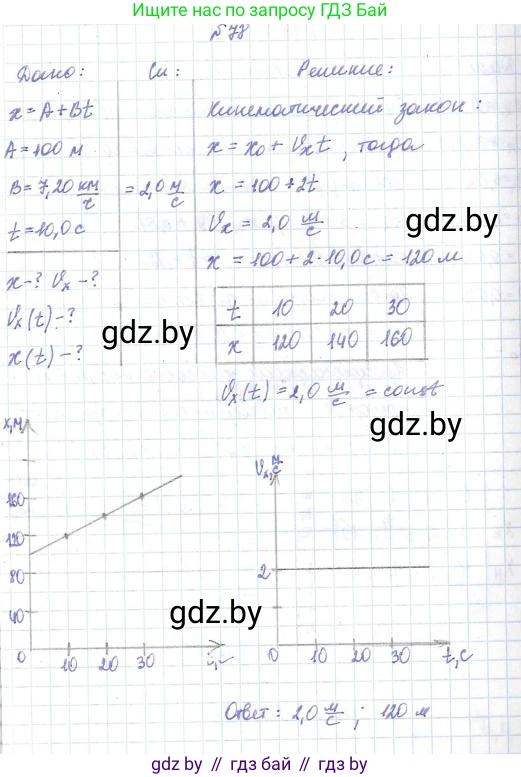 Ищите нас по запросу ГДЗ Бай
№78
Дано:
x = A + Bt
A = 100 м
B = 7,20 км/ч
t = 10,0 с
x - ? Vx - ?
Vx(t) - ?
x(t) - ?
Си:
= 2,0 м/с
Решение:
Кинематический закон:
x = x₀ + Vxt, тогда
x = 100 + 2t
Vx = 2,0 м/с
x = 100 + 2 · 10,0 с = 120 м
gdz.by
t 10 20 30
x 120 140 160
gdz.by
Vx(t) = 2,0 м/с = const
gdz.by
x, м
160
120
80
40
0 10 20 30
Vx, м/с
2
0 10 20 30 t, с
gdz.by
Ответ: 2,0 м/с; 120 м
gdz.by // гдз бай // gdz.by